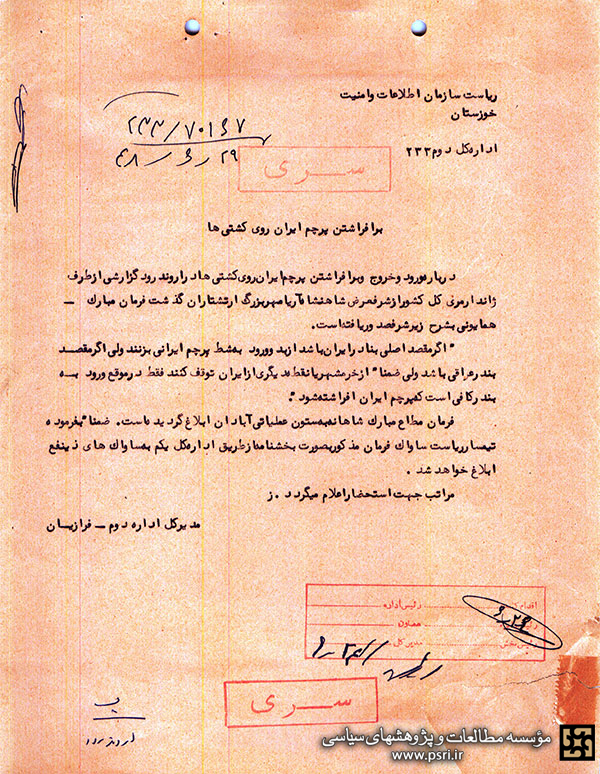 ریاست سازمان اطلاعات وامنیت
خوزستان
اداره کل دوم ۲۳۳
۲۳۳/۷۰۱۶۷
۴۸/۶/۲۹
ســری
برافراشتن پرچم ایران روی کشتی ها
درباره ورود و خروج وبرافراشتن پرچم ایران روی کشتی ها در اروند رود گزارشی از طرف
ژاندارمری کل کشور از شرفعرض شاهنشاه آریامهر بزرگ ارتشتاران گذشت فرمان مبارك ـ
همایونی بشرح زیر شرفصد وریافته است.
"اگر مقصد اصلی بنادر ایران باشد از بد وورود به شط پرچم ایرانی بزنند ولی اگر مقصد
بندر عراقی باشد ولی ضمنا" از خرمشهر یا نقطه دیگری از ایران توقف کنند فقط در موقع ورود به
بندر کافی است که پرچم ایران افراشته شود".
فرمان مطاع مبارك شاهانه به ستون عملیاتی آبادان ابلاغ گردیده است. ضمنا" بفرموده
تیمسار ریاست ساواك فرمان مذکور بصورت بخشنامه از طریق اداره کل یکم به ساواك های ذینفع
ابلاغ خواهد شد.
مراتب جهت استحضار اعلام میگردد. ز
مدیرکل اداره دوم ـ فرازیان
رئیس اداره
معاون
مدیر کل
ســری
اروند رود
مؤسسه مطالعات و پژوهشهای سیاسی
www.psri.ir